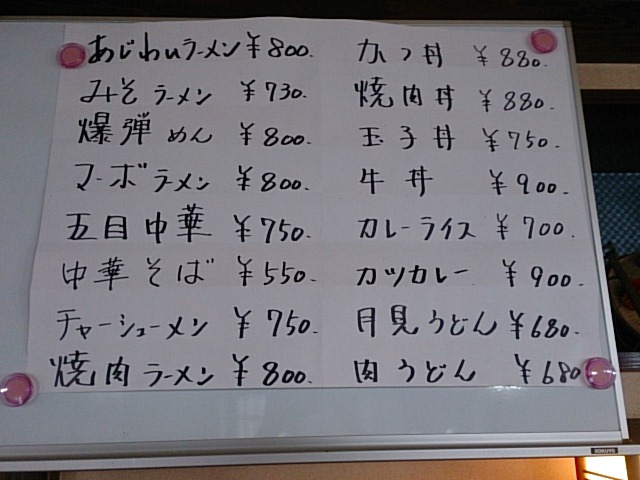 あじわいラーメン ¥800.
みそラーメン ¥730.
爆弾めん ¥800.
マーボラーメン ¥800.
五目中華 ¥750.
中華そば ¥550.
チャーシューメン ¥750.
焼肉ラーメン ¥800.
カツ丼 ¥880.
焼肉丼 ¥880.
玉子丼 ¥750.
牛丼 ¥900.
カレーライス ¥700.
カツカレー ¥900.
月見うどん ¥680.
肉うどん ¥680
KOKUYO